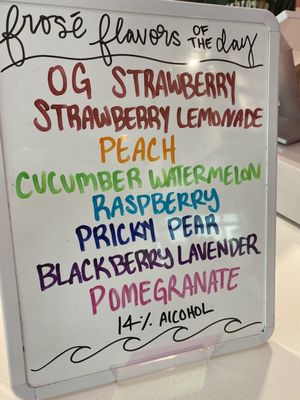 frosé flavors OF THE day
OG STRAWBERRY
STRAWBERRY LEMONADE
PEACH
CUCUMBER WATERMELON
RASPBERRY
PRICKY PEAR
BLACKBERRY LAVENDER
POMEGRANATE
14% ALCOHOL